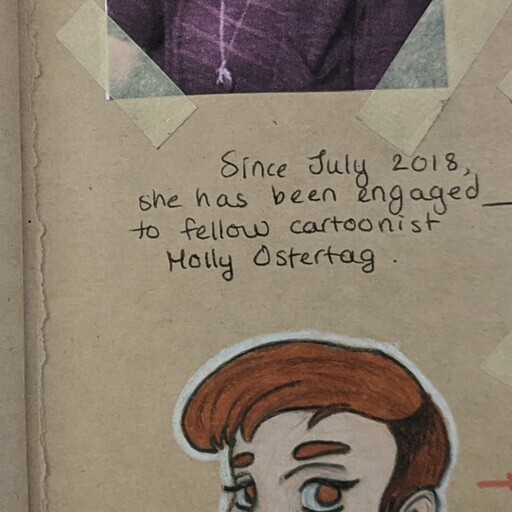 Since July 2018,
she has been engaged
to fellow cartoonist
Molly Ostertag.